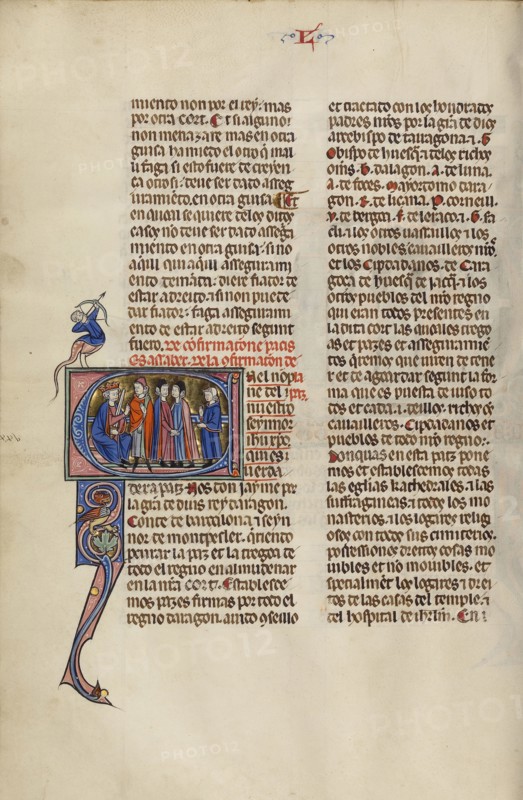 L
miento non por el rey. mas
por otra cort. Et si alguno
non menazare mas en otra
guisa ha miedo el otro quel mal
li faga si esto fuere de creyen
ça otrosi. deve ser dato asseg
ramiento. en otra guisa. Et
en qual se quiere delos ditos
casos no deve ser dato assegu
miento en otra guisa. sino
aquill qui aquill asseguramj
ento demanda. diere fiador de
estar a dreito. si non puede
dar fiador. faga asseguram
ento de estar a dreito segunt
fuero. De confirmatione pacis
Es assaber. de la confirmation de
la paz.
nel nom
ne del
nuestro
seynnor
ihu xpo
qui es
uerda
dera paz. Nos don Jayme por
la gracia de dius rey daragon.
Conte de barcalona. et seyn
nor de montpesler. queriendo
penrar la paz et la tregoa de
todo el regno en almudenar
en la nuestra cort. Establesce
mos pazes firmas por todo el
regno daragon. auito consello
et tractado con los hondrados
padres nuestros por la gracia de dios
arcebispo de taragona. et. B.
Obispo de huesca. et delos richos
omes. B. dalagon. A. de luna.
A. de foces. Mayordomo dara
gon. R. de liçana. P. cornell.
V. de bergoa. F. de
los otros uassallos et los
otros nobles. cauailleros nuestros.
et los Cipdadanos. de Çara
goça de huesca de jacca. et los
otros pueblos del nuestro regno
qui eran todos presentes en
la dita cort las quales trego
as et pazes et asseguramien
tos queremos que uiren de tene
r et de aguardar segunt la for
ma que es puesta de iuso to
dos et cada. et de illos. richos omes
cauailleros. Cipdadanos et
pueblos de todo nuestro regno.
Donquas en esta paz pone
mos et establescemos todas
las eglisias kathedrales. et las
suffraganeas. et todos los mo
nasterios. et los logares religi
osos con todos sus cimiterios.
possessiones drettos cosas mo
uibles et no mouibles. et
specialment los logares. et drei
tos de las casas del temple. et
del hospital de ihrlm. En
PHOTO12